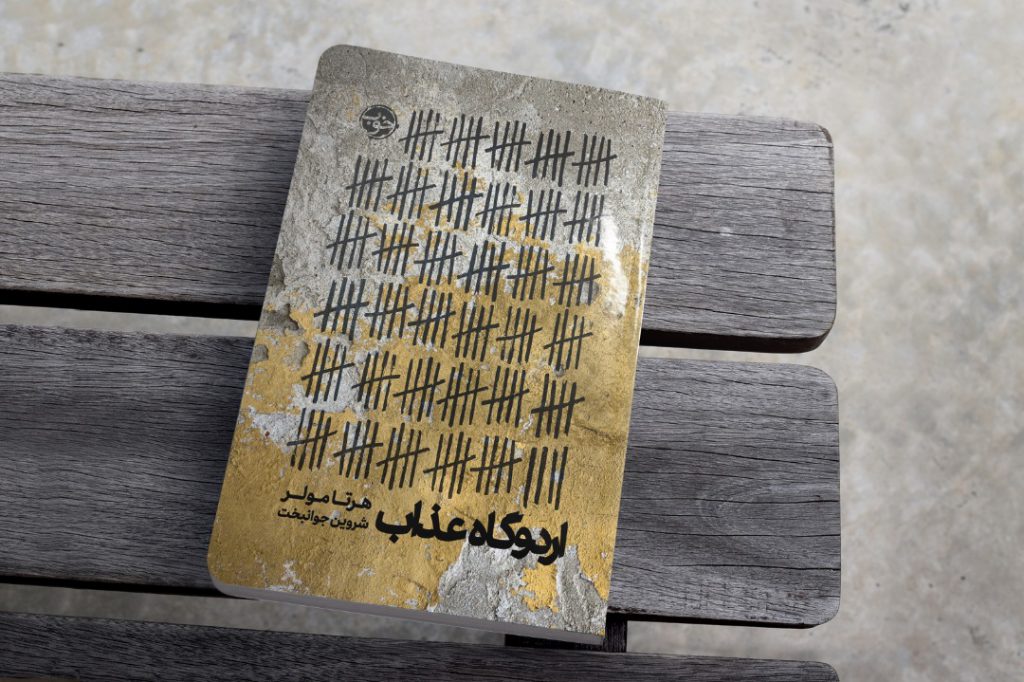 خوب
هرتا مولر
شروین جوانبخت
اردوگاه عذاب